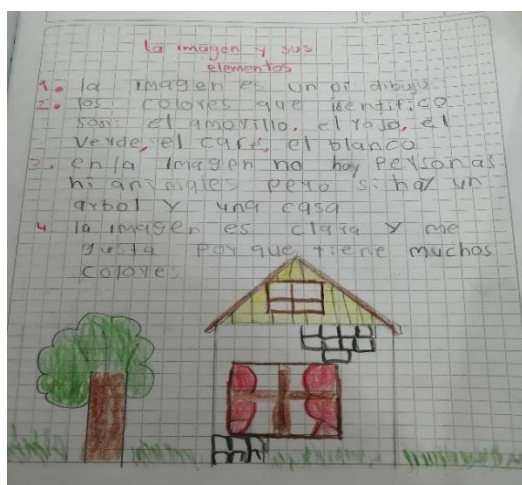 la imagen y sus
elementos
1. la imagen es un di dibujo
2. los colores que identifico
son: el amarillo, el rojo, el
verde, el café, el blanco
3. en la imagen no hay personas
ni animales pero si hay un
arbol y una casa
4. la imagen es clara y me
gusta por que tiene muchos
colores